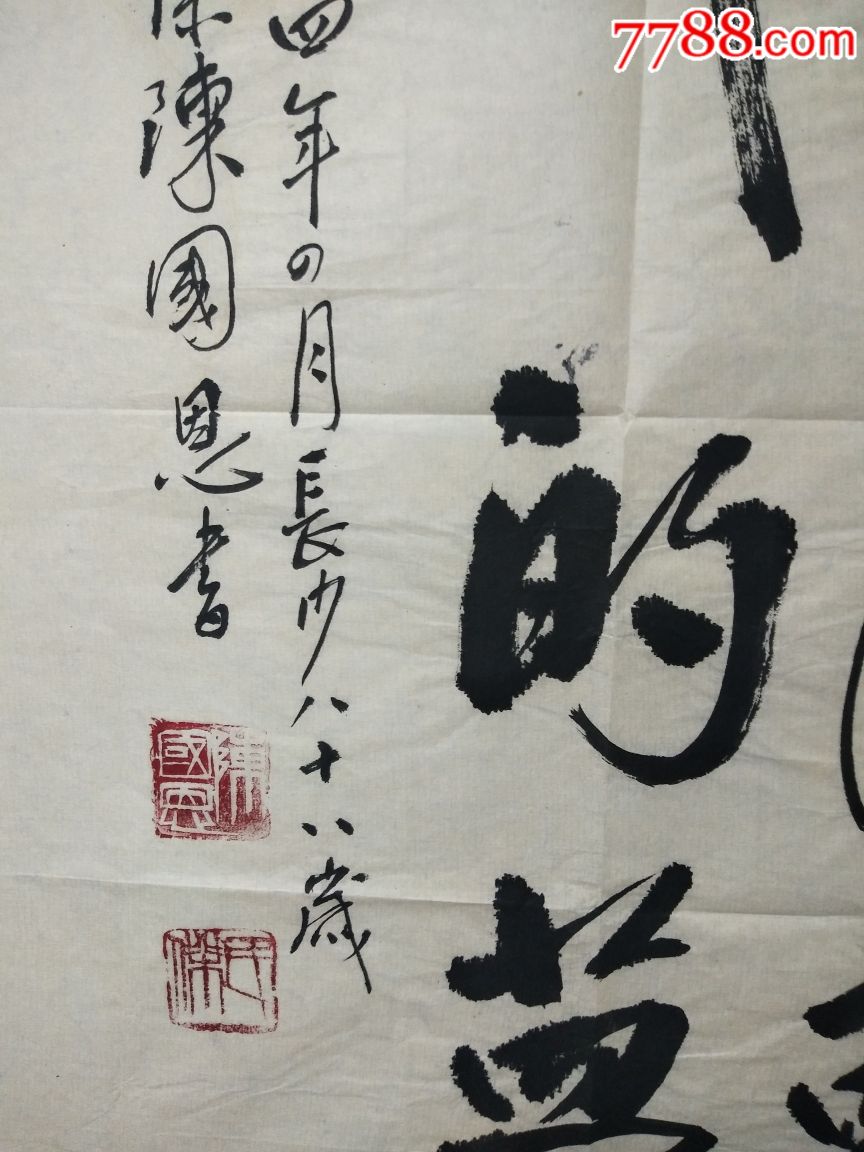 7788.com
的益
四年の月長沙八十八歲
陳國恩書
陳國恩